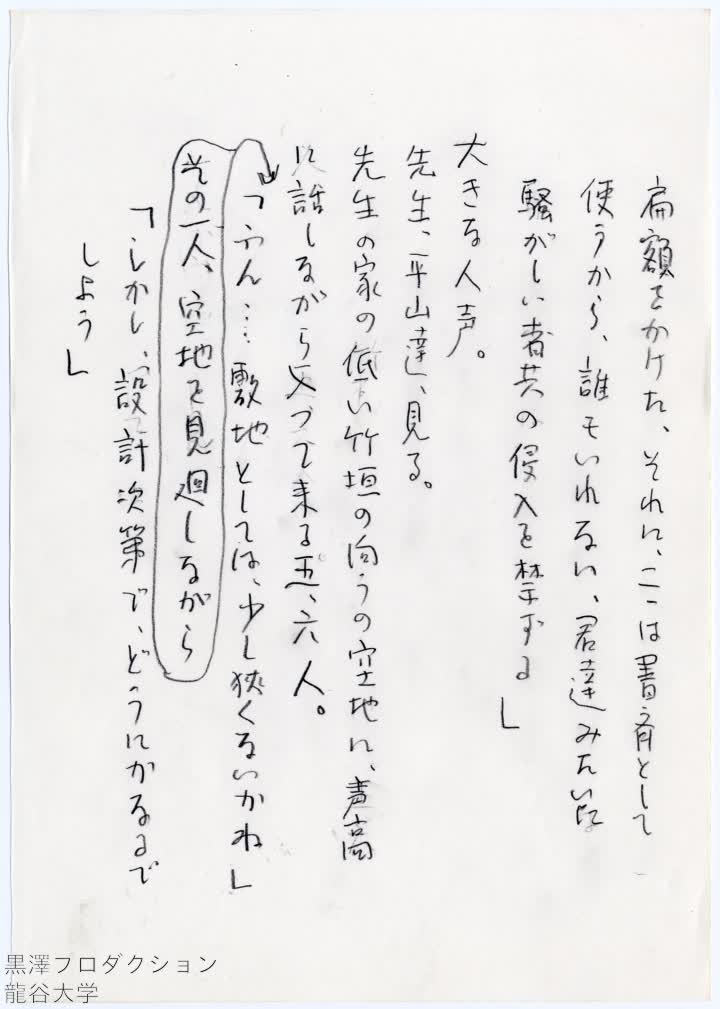 扁額をかけた、それに、こゝは書斉として
使うから、誰もいれない、君達みたいな
騒がしい者共の侵入を禁ずる」
大きな人声。
先生、平山達、見る。
先生の家の低い竹垣の向うの空地に、声高
に話しながら入って来る五、六人。
「ふん…敷地としては、少し狭くないかね」
その一人、空地を見廻しながら
「しかし、設計次第で、どうにかなるで
しょう」
黒澤プロダクション
龍谷大学